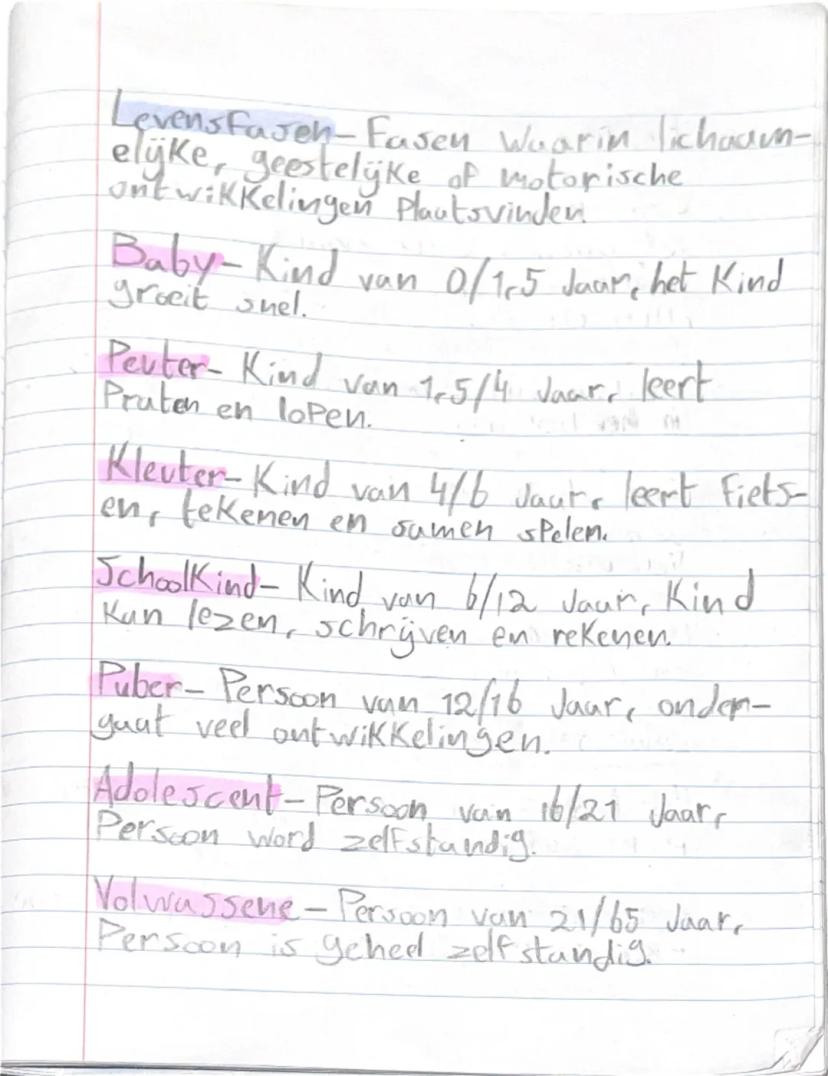 Levensfasen - Fasen waarin lichaam-
elijke, geestelijke of motorische
ontwikkelingen plaatsvinden.
Baby - Kind van 0/1,5 Jaar, het Kind
groeit snel.
Peuter - Kind van 1,5/4 Jaar, leert
Praten en lopen.
Kleuter - Kind van 4/6 Jaar, leert Fiets-
en, tekenen en samen spelen.
Schoolkind - Kind van 6/12 Jaar, Kind
kan lezen, schrijven en rekenen.
Puber - Persoon van 12/16 Jaar, onder-
gaat veel ontwikkelingen.
Adolescent - Persoon van 16/21 Jaar,
Persoon word zelfstandig.
Volwassene - Persoon van 21/65 Jaar,
Persoon is geheel zelfstandig.